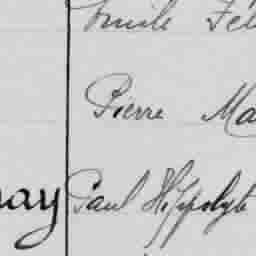 Emile Fél
Pierre Ma
nay Paul Hippolyte